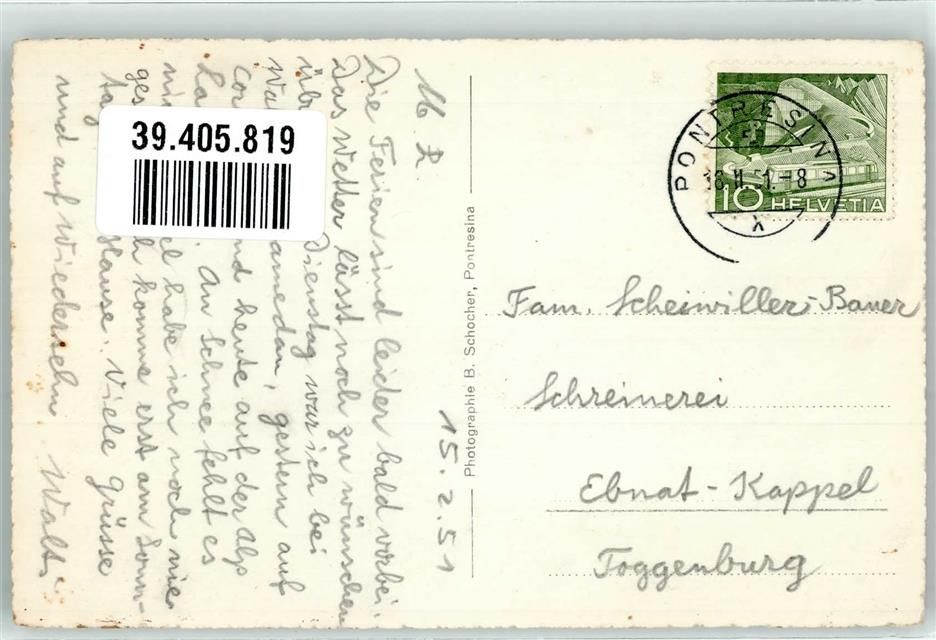 15.2.51
M. L.
Die Ferien sind leider bald vorbei.
Das Wetter lässt noch zu wünschen
üb Dienstag war ich bei
Wa amedan, gestern auf
Cor nd heute auf der Alp
La An Schnee fehlt es
ni el habe ich noch nie
ges h komme erst am Sonn-
tag Hause. Viele Grüsse
und auf Wiedersehn Walt.
39.405.819
Photographie B. Schocher, Pontresina
PONTRESINA
16.II.51.-8
X
10 HELVETIA
Fam. Scheiwiller-Bauer
Schreinerei
Ebnat-Kappel
Toggenburg